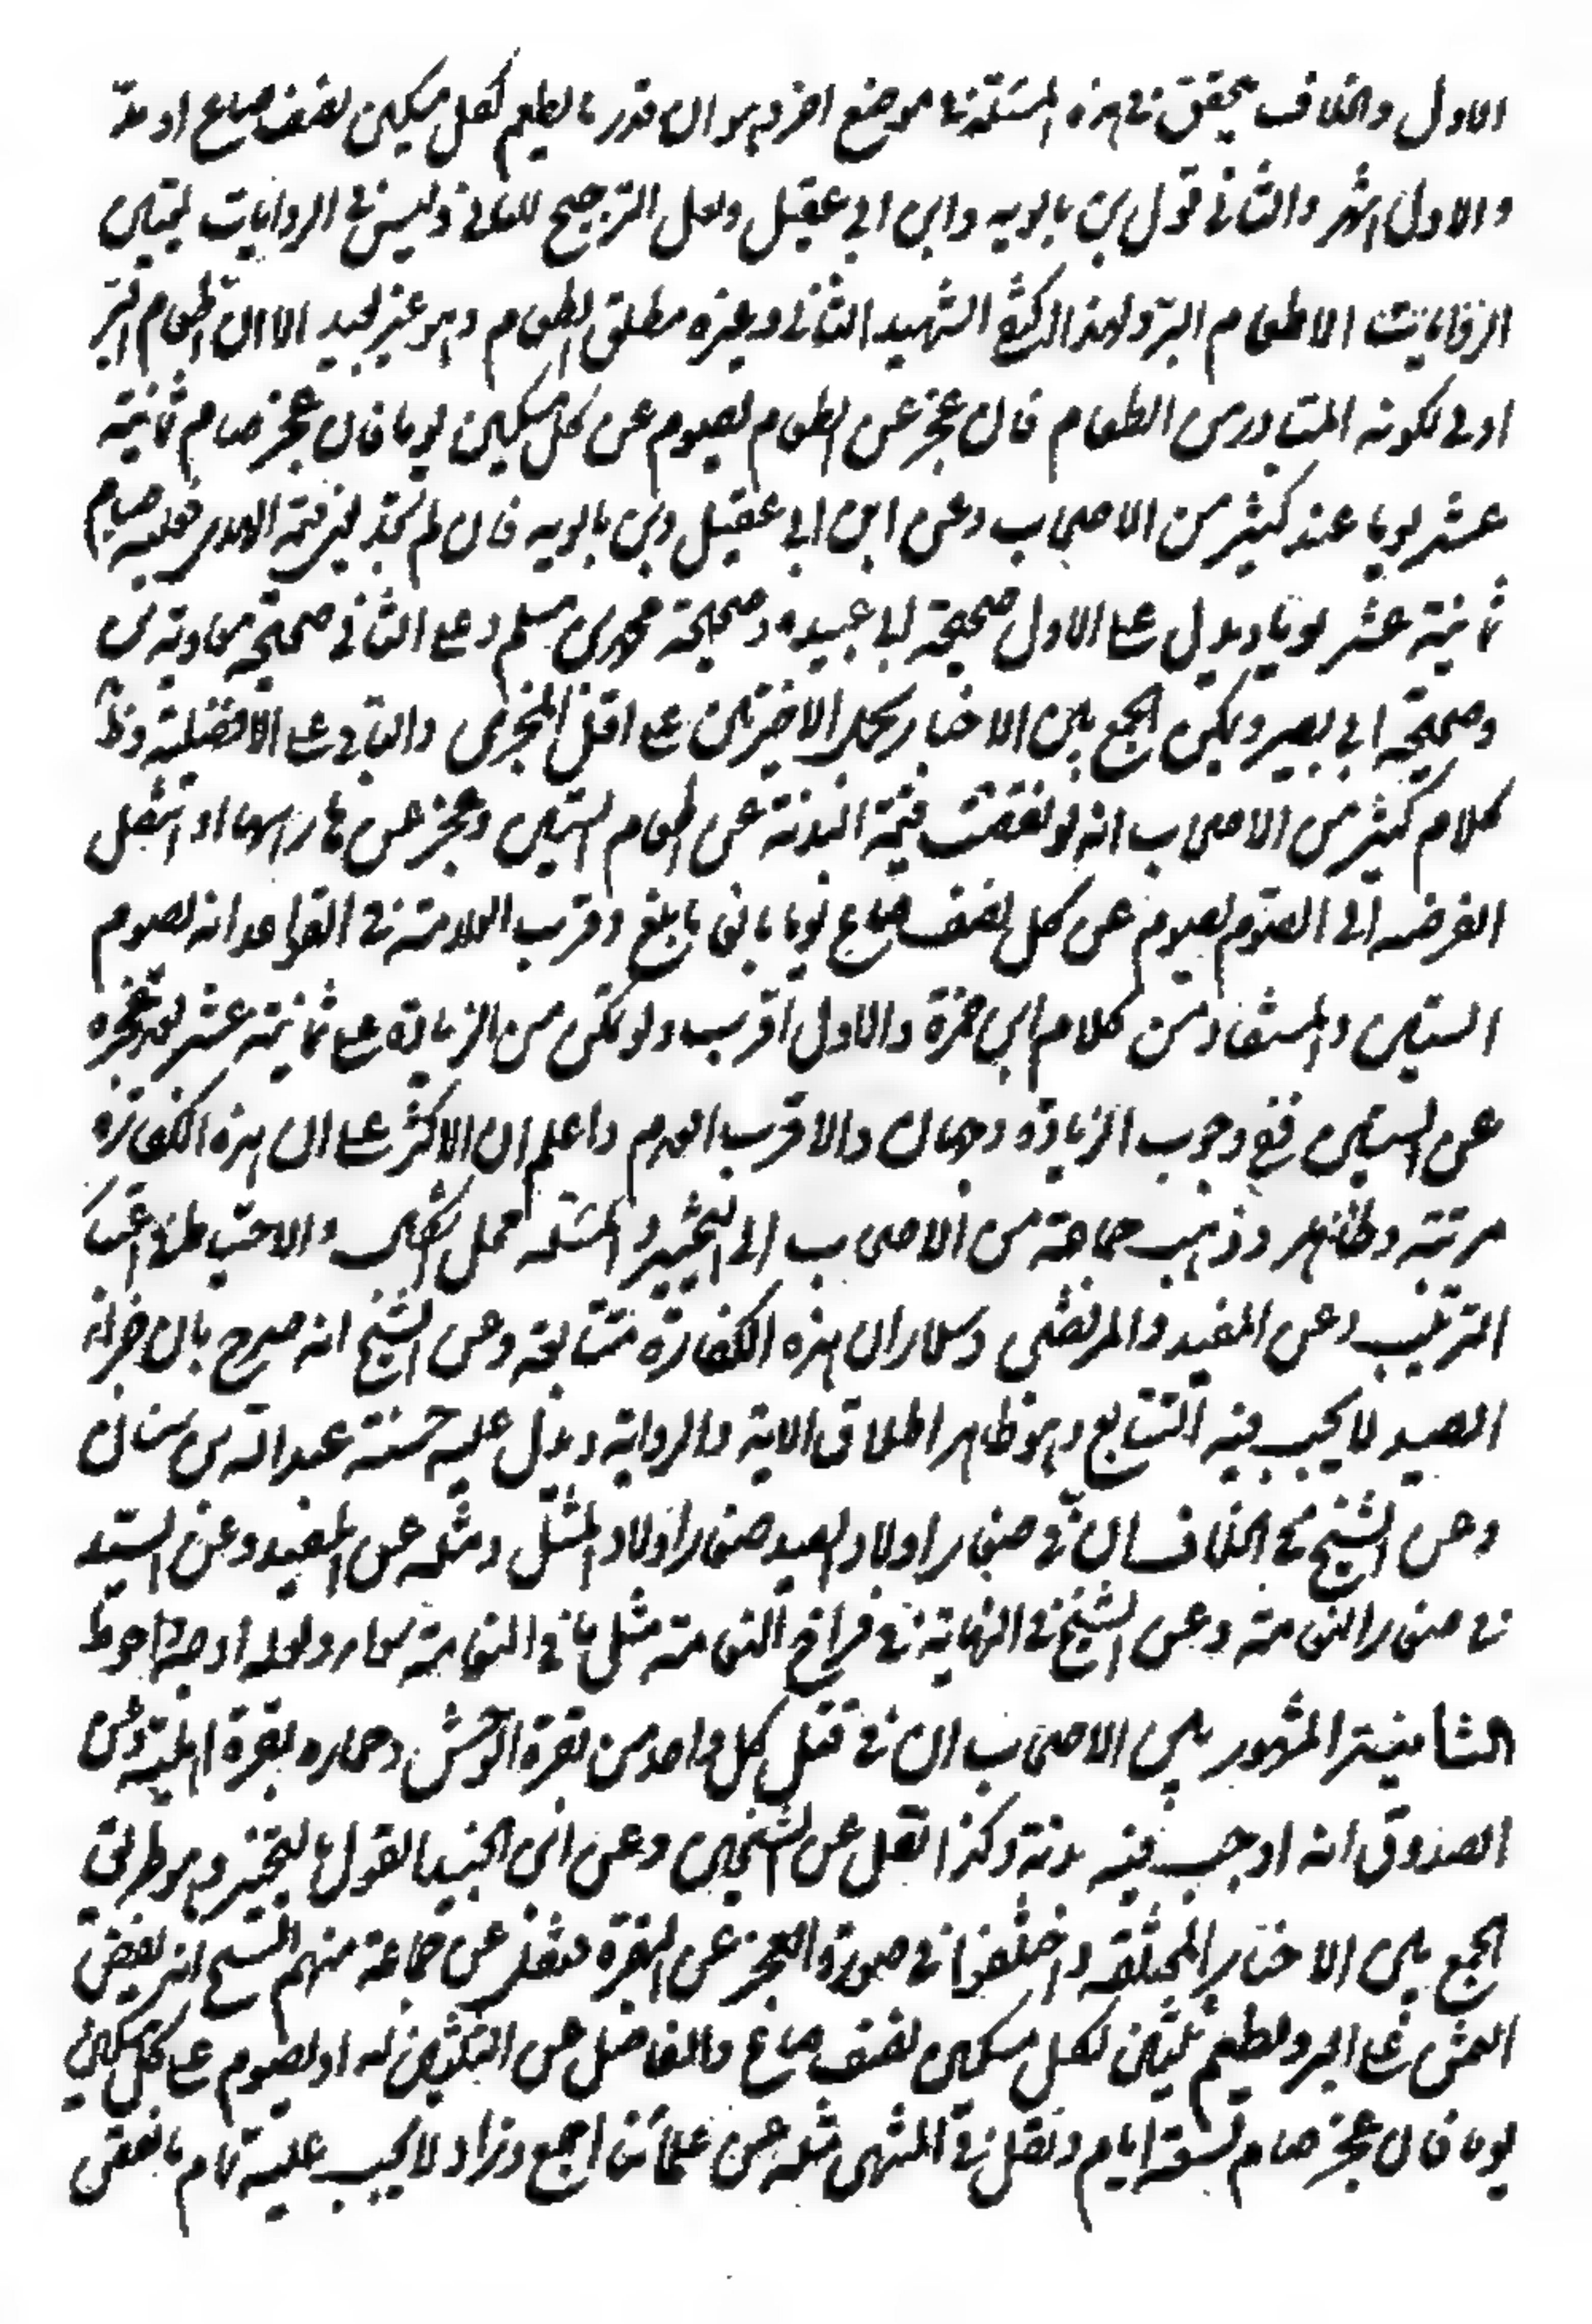 الاول والخلاف يتحقق في هذه المسئلة في موضع اخر وهو ان قدر ما يطعم لكل مسكين نصف صاع او مدّ
والاول اشهر والثاني قول ابن بابويه وابن ابي عقيل ولعل الترجيح للثاني وليس في الروايات لمتين
الا طعام البرّ ولهذا اكتفى الشهيد الثاني وغيره مطلق الطعام وهو غير بعيد الا ان اطعام البرّ
اولى لكونه المتبادر من الطعام فان عجز عن الطعام يصوم عن كل مسكين يوما فان عجز صام ثمانية
عشر يوما عند كثير من الاصحاب وعن ابن ابي عقيل وابن بابويه فان لم يجد فعليه صيام
ثمانية عشر يوما ويدل على الاول صحيحة ابي عبيده وصحيحة محمد بن مسلم وعلى الثاني صحيحة معاوية بن
وصحيحة ابي بصير ويمكن الجمع بين الاخبار بحمل الاخيرتين على اقل المجزي والباقي على الافضلية وظ
كلام كثير من الاصحاب انه لو نقصت قيمة البدنة عن اطعام الستين وعجز عن ما راسها او انتقل
الفرضه الى الصوم يصوم عن كل نصف صاع يوما بالغا ما بلغ وقرب العلامة في القواعد انه يصوم
الستين والمستفاد من كلام ابن حمزة والاول اقرب ولو تمكن من الزيادة على ثمانية عشر بعد عجزه
عن الستين ففي وجوب الزيادة وجهان والاقرب العدم واعلم ان الاكثر على ان هذه الكفارة
مرتبة وظاهر وذهب جماعة من الاصحاب الى التخيير والمسئلة محل اشكال والاحتياط في اعتبا
الترتيب وعن المفيد والمرتضى وسلار ان هذه الكفارة متتابعة وعن الشيخ انه صرح بان جزاء
الصيد لا يجب فيه التتابع وهو ظاهر اطلاق الاية والرواية ويدل عليه حسنة عبد الله بن سنان
وعن الشيخ في الخلاف ان في صغار اولاد الصيد صغار اولاد المثل ومثله عن المفيد وعن السيد
في صغار النعامة وعن الشيخ في النهاية في فراخ النعامة مثل ما في النعامة سواء ولعله اوجه احوط
الثانية المشهور بين الاصحاب ان في قتل كل واحد من بقرة الوحش وحماره بقرة اهلية وعن
الصدوق انه اوجب فيه بدنة وكذا نقل عن الشيخين وعن ابن الجنيد القول بالتخيير وهو طريق
الجمع بين الاخبار المختلفة واختلفوا في صورة العجز عن البقرة فنقل عن جماعة منهم الشيخ انه يفض
الثمن على البر ويطعم ثلثين لكل مسكين نصف صاع والفاضل عن الثلثين له او يصوم على كل مسكين
يوما فان عجز صام تسعة ايام ونقل في المنتهى مثله عن علمائنا اجمع وزاد لا يجب عليه تمام ما نقص